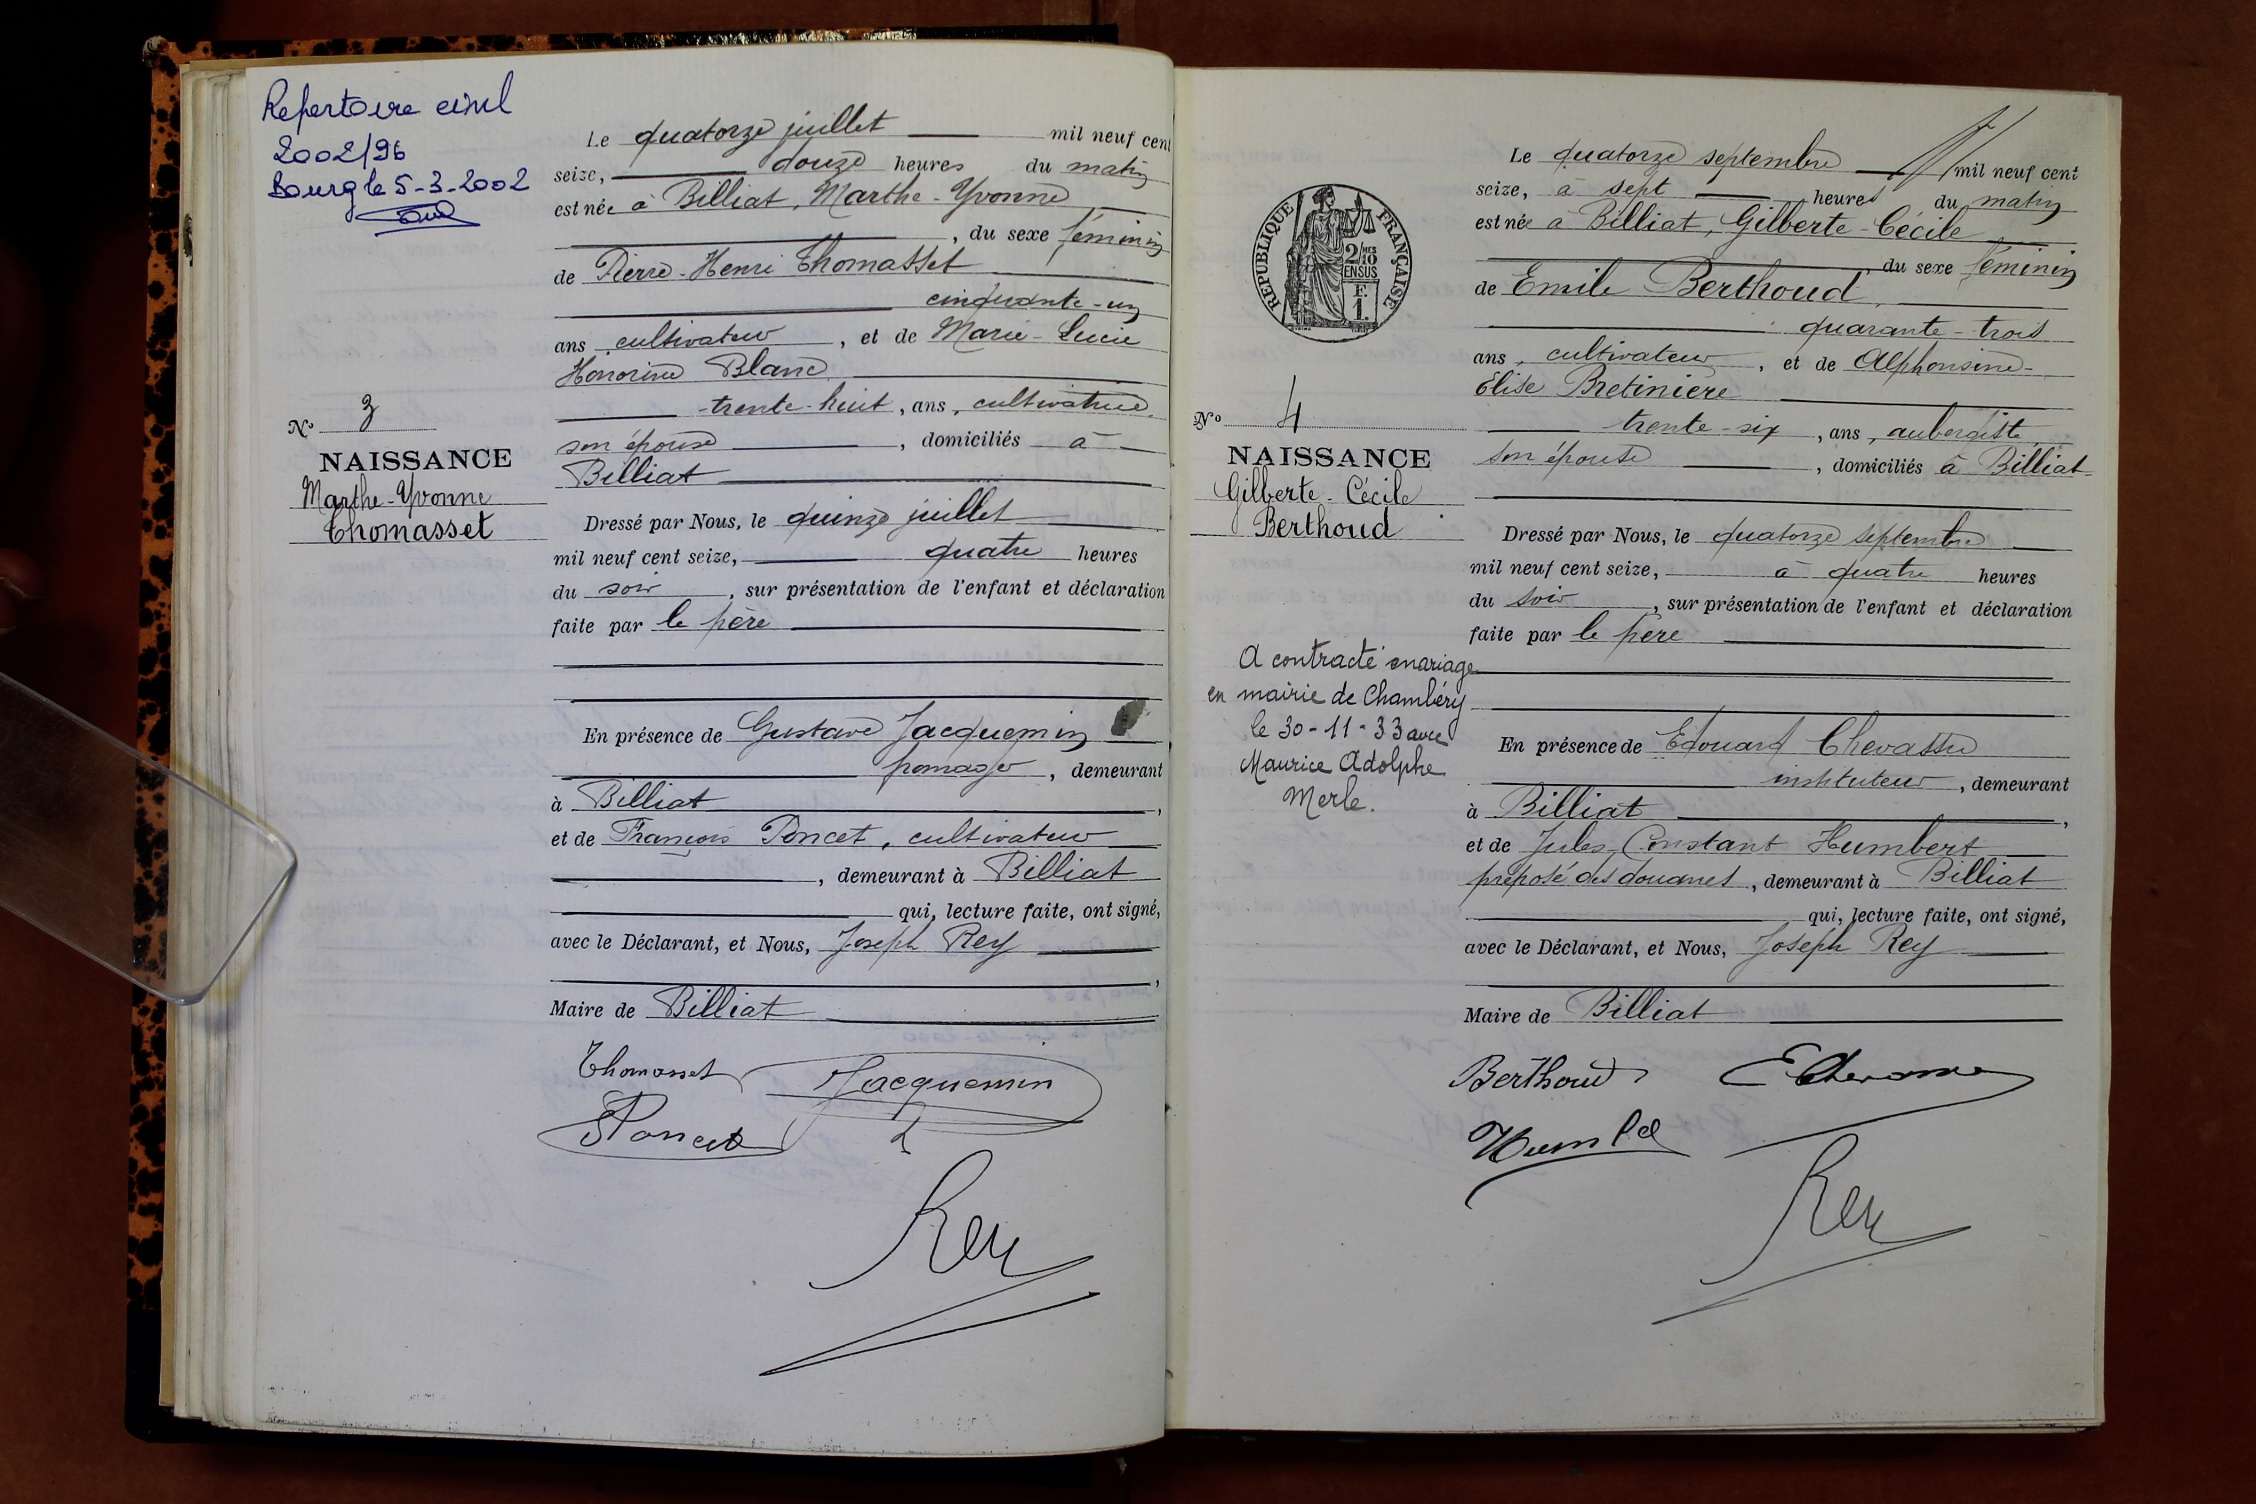 Repertoire civil
2002/96
Bourg le 5-3-2002
Le quatorze juillet mil neuf cent
seize, douze heures du matin
est née à Billiat, Marthe-Yvonne
, du sexe féminin
de Pierre-Henri Thomasset
cinquante-un
ans, cultivateur, et de Marie-Lucie
Honorine Blanc
trente-huit, ans, cultivatrice,
son épouse, domiciliés à
Billiat
No 3
NAISSANCE
Marthe-Yvonne
Thomasset
Dressé par Nous, le quinze juillet
mil neuf cent seize, quatre heures
du soir, sur présentation de l'enfant et déclaration
faite par le père
En présence de Gustave Jacquemin
, demeurant
à Billiat,
et de François Poncet, cultivateur
, demeurant à Billiat
qui, lecture faite, ont signé,
avec le Déclarant, et Nous, Joseph Rey
,
Maire de Billiat
Thomasset Jacquemin
Poncet
Rey
RÉPUBLIQUE FRANÇAISE
2/10 MES
EN SUS
F.
1.
Le quatorze septembre mil neuf cent
seize, à sept heures du matin
est née à Billiat, Gilberte-Cécile
, du sexe féminin
de Emile Berthoud
quarante-trois
ans, cultivateur, et de Alphonsine-
Elise Bretinière
trente-six, ans, aubergiste,
son épouse, domiciliés à Billiat
No 4
NAISSANCE
Gilberte-Cécile
Berthoud
Dressé par Nous, le quatorze septembre
mil neuf cent seize, à quatre heures
du soir, sur présentation de l'enfant et déclaration
faite par le père
A contracté mariage
en mairie de Chambéry
le 30-11-33 avec
Maurice Adolphe
Merle.
En présence de Edouard Chevassu
instituteur, demeurant
à Billiat,
et de Jules Constant Humbert
préposé des douanes, demeurant à Billiat
qui, lecture faite, ont signé,
avec le Déclarant, et Nous, Joseph Rey
Maire de Billiat
Berthoud E Chevassu
Humbert
Rey